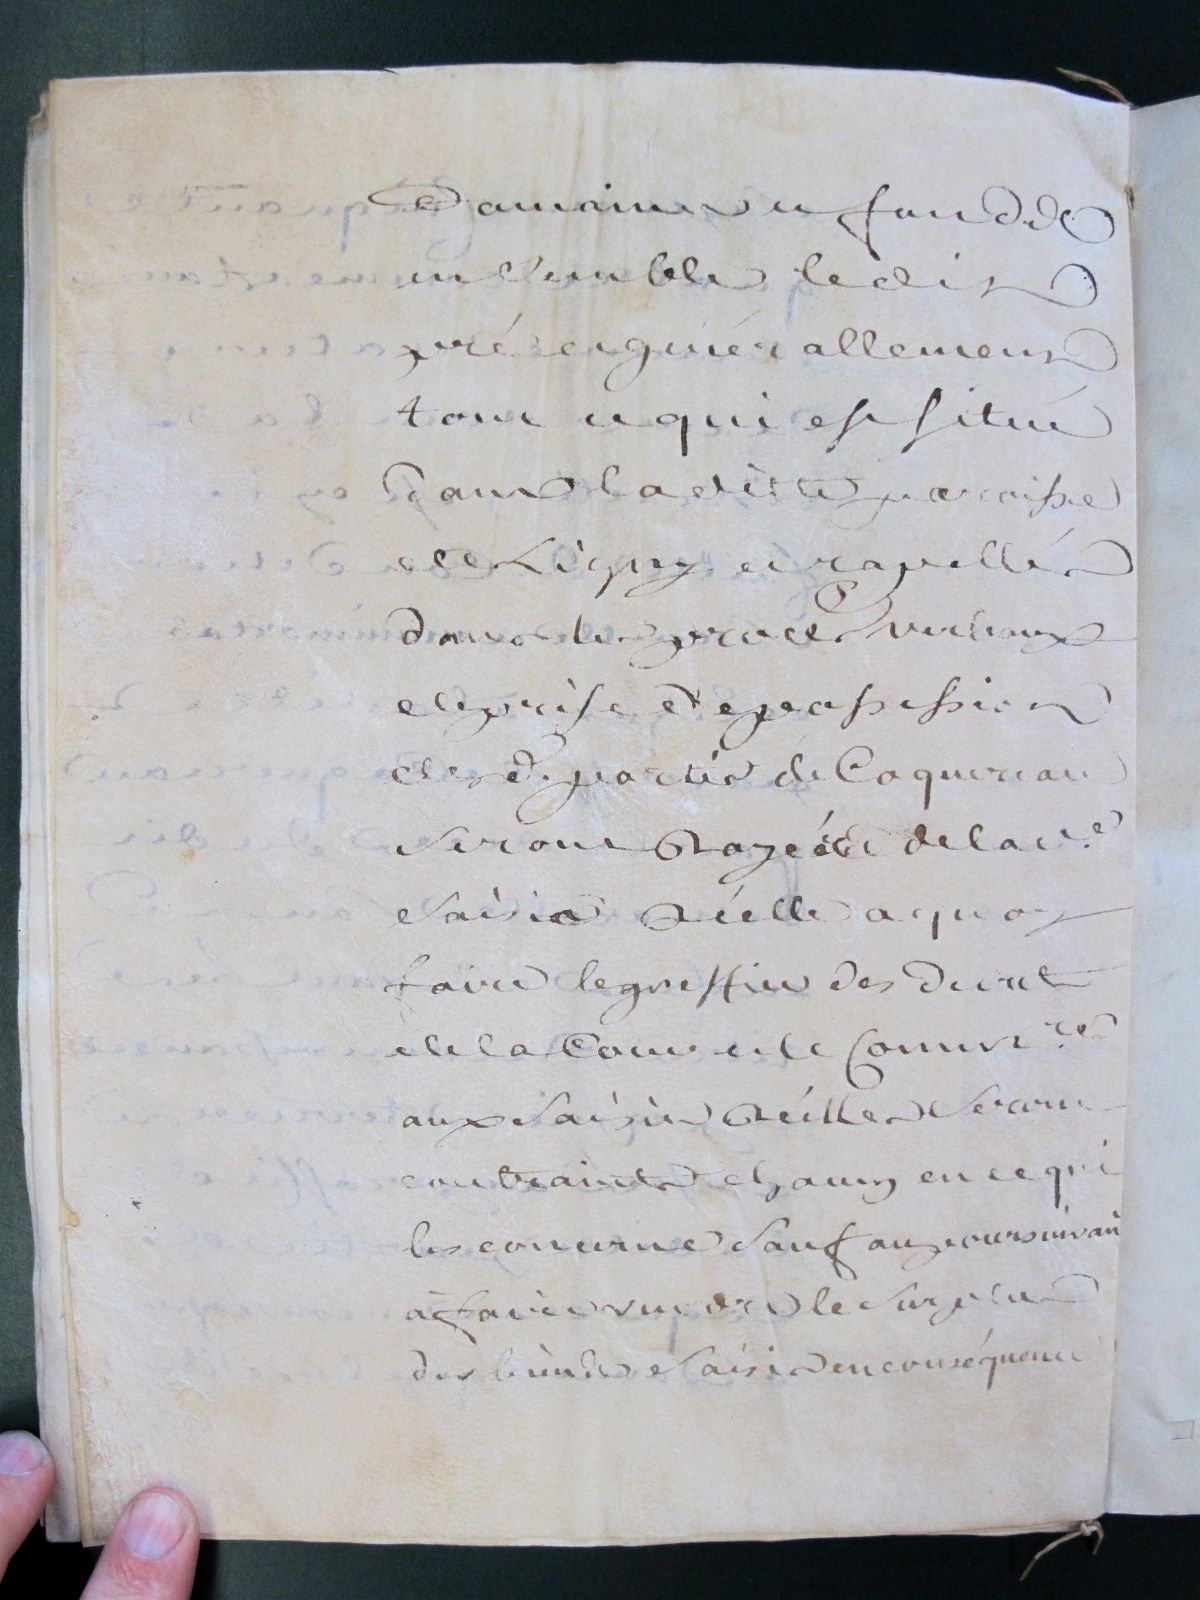 Domaine du fond de
ensemble ledit
pré et generallement
tout ce qui est situé
dans ladite paroisse
de Ligny et rapellés
dans les procès verbaux
de prise de possession
des d. partis de Coquereau
seront Rayées de lad.e
saisie Réelle a quoy
faire le greffier des decrets
de la Cour et le Commre
aux saisies Réelles seront
contraints chacun en ce qui
les concerne sauf au poursuivant
à faire vendre le surplus
des biens saisis en conséquence